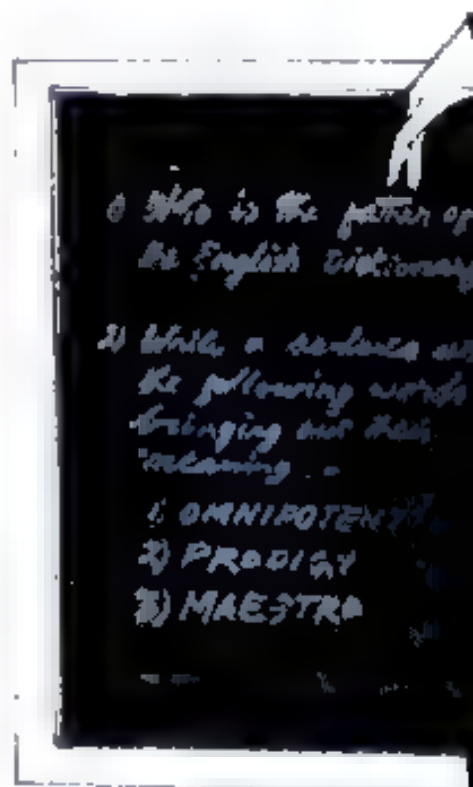 1) Who is the father of
the English Dictionary
2) Write a sentence
the following words
bringing out their
meaning
1. OMNIPOTENT
2) PRODIGY
3) MAESTRO